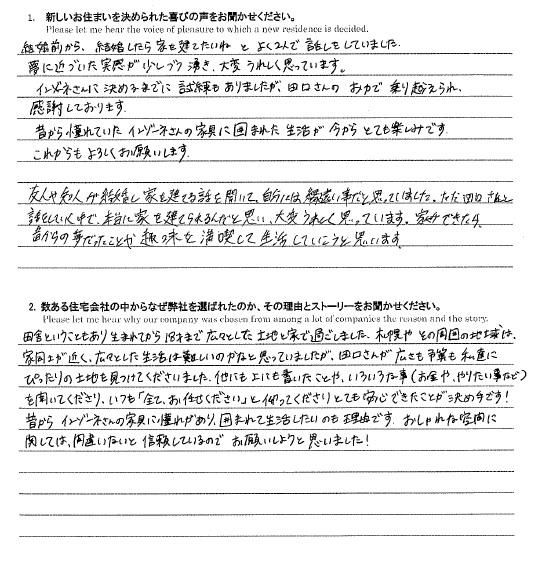 1. 新しいお住まいを決められた喜びの声をお聞かせください。
Please let me hear the voice of pleasure to which a new residence is decided.
結婚前から、結婚したら家を建てたいね とよく2人で話しをしていました。
夢に近づいた実感が少しづつ湧き、大変うれしく思っています。
インゾーネさんに決めるまでに試練もありましたが、田口さんの おかげで乗り越えられ、
感謝しております。
昔から憧れていたインゾーネさんの家具に囲まれた生活が今からとても楽しみです。
これからもよろしくお願いします。
友人や知人が結婚し家を建てる話を聞いて、自分には縁遠い事だと思っていました。ただ田口さんと
話をしていく中で、本当に家を建てられるんだと思い、大変うれしく思っています。家ができたら、
昔からの夢だったことや趣味を満喫して生活していこうと思います。
2. 数ある住宅会社の中からなぜ弊社を選ばれたのか、その理由とストーリーをお聞かせください。
Please let me hear why our company was chosen from among a lot of companies the reason and the story.
田舎ということもあり生まれてから18才まで広々とした土地と家で過ごしました。札幌やその周囲の地域は、
家同士が近く、広々とした生活は難しいのかなと思っていましたが、田口さんが広さも予算も私達に
ぴったりの土地を見つけてくださいました。他にも上にも書いたことや、いろいろな事(お金や、やりたい事など)
を聞いてくださり、いつも「全て、お任せください」と仰ってくださりとても安心できたことが決め手です!
昔からインゾーネさんの家具に憧れがあり、囲まれて生活したいのも理由です。おしゃれな空間に
関しては、間違いないと信頼しているので お願いしようと思いました!